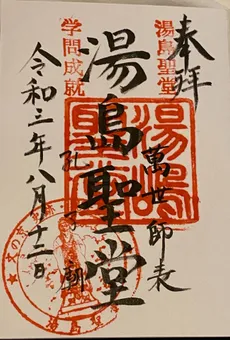 奉拝
湯島聖堂
萬世師表
湯島聖堂
湯嶋
聖堂
孔子廟
学問成就
令和三年八月十二日